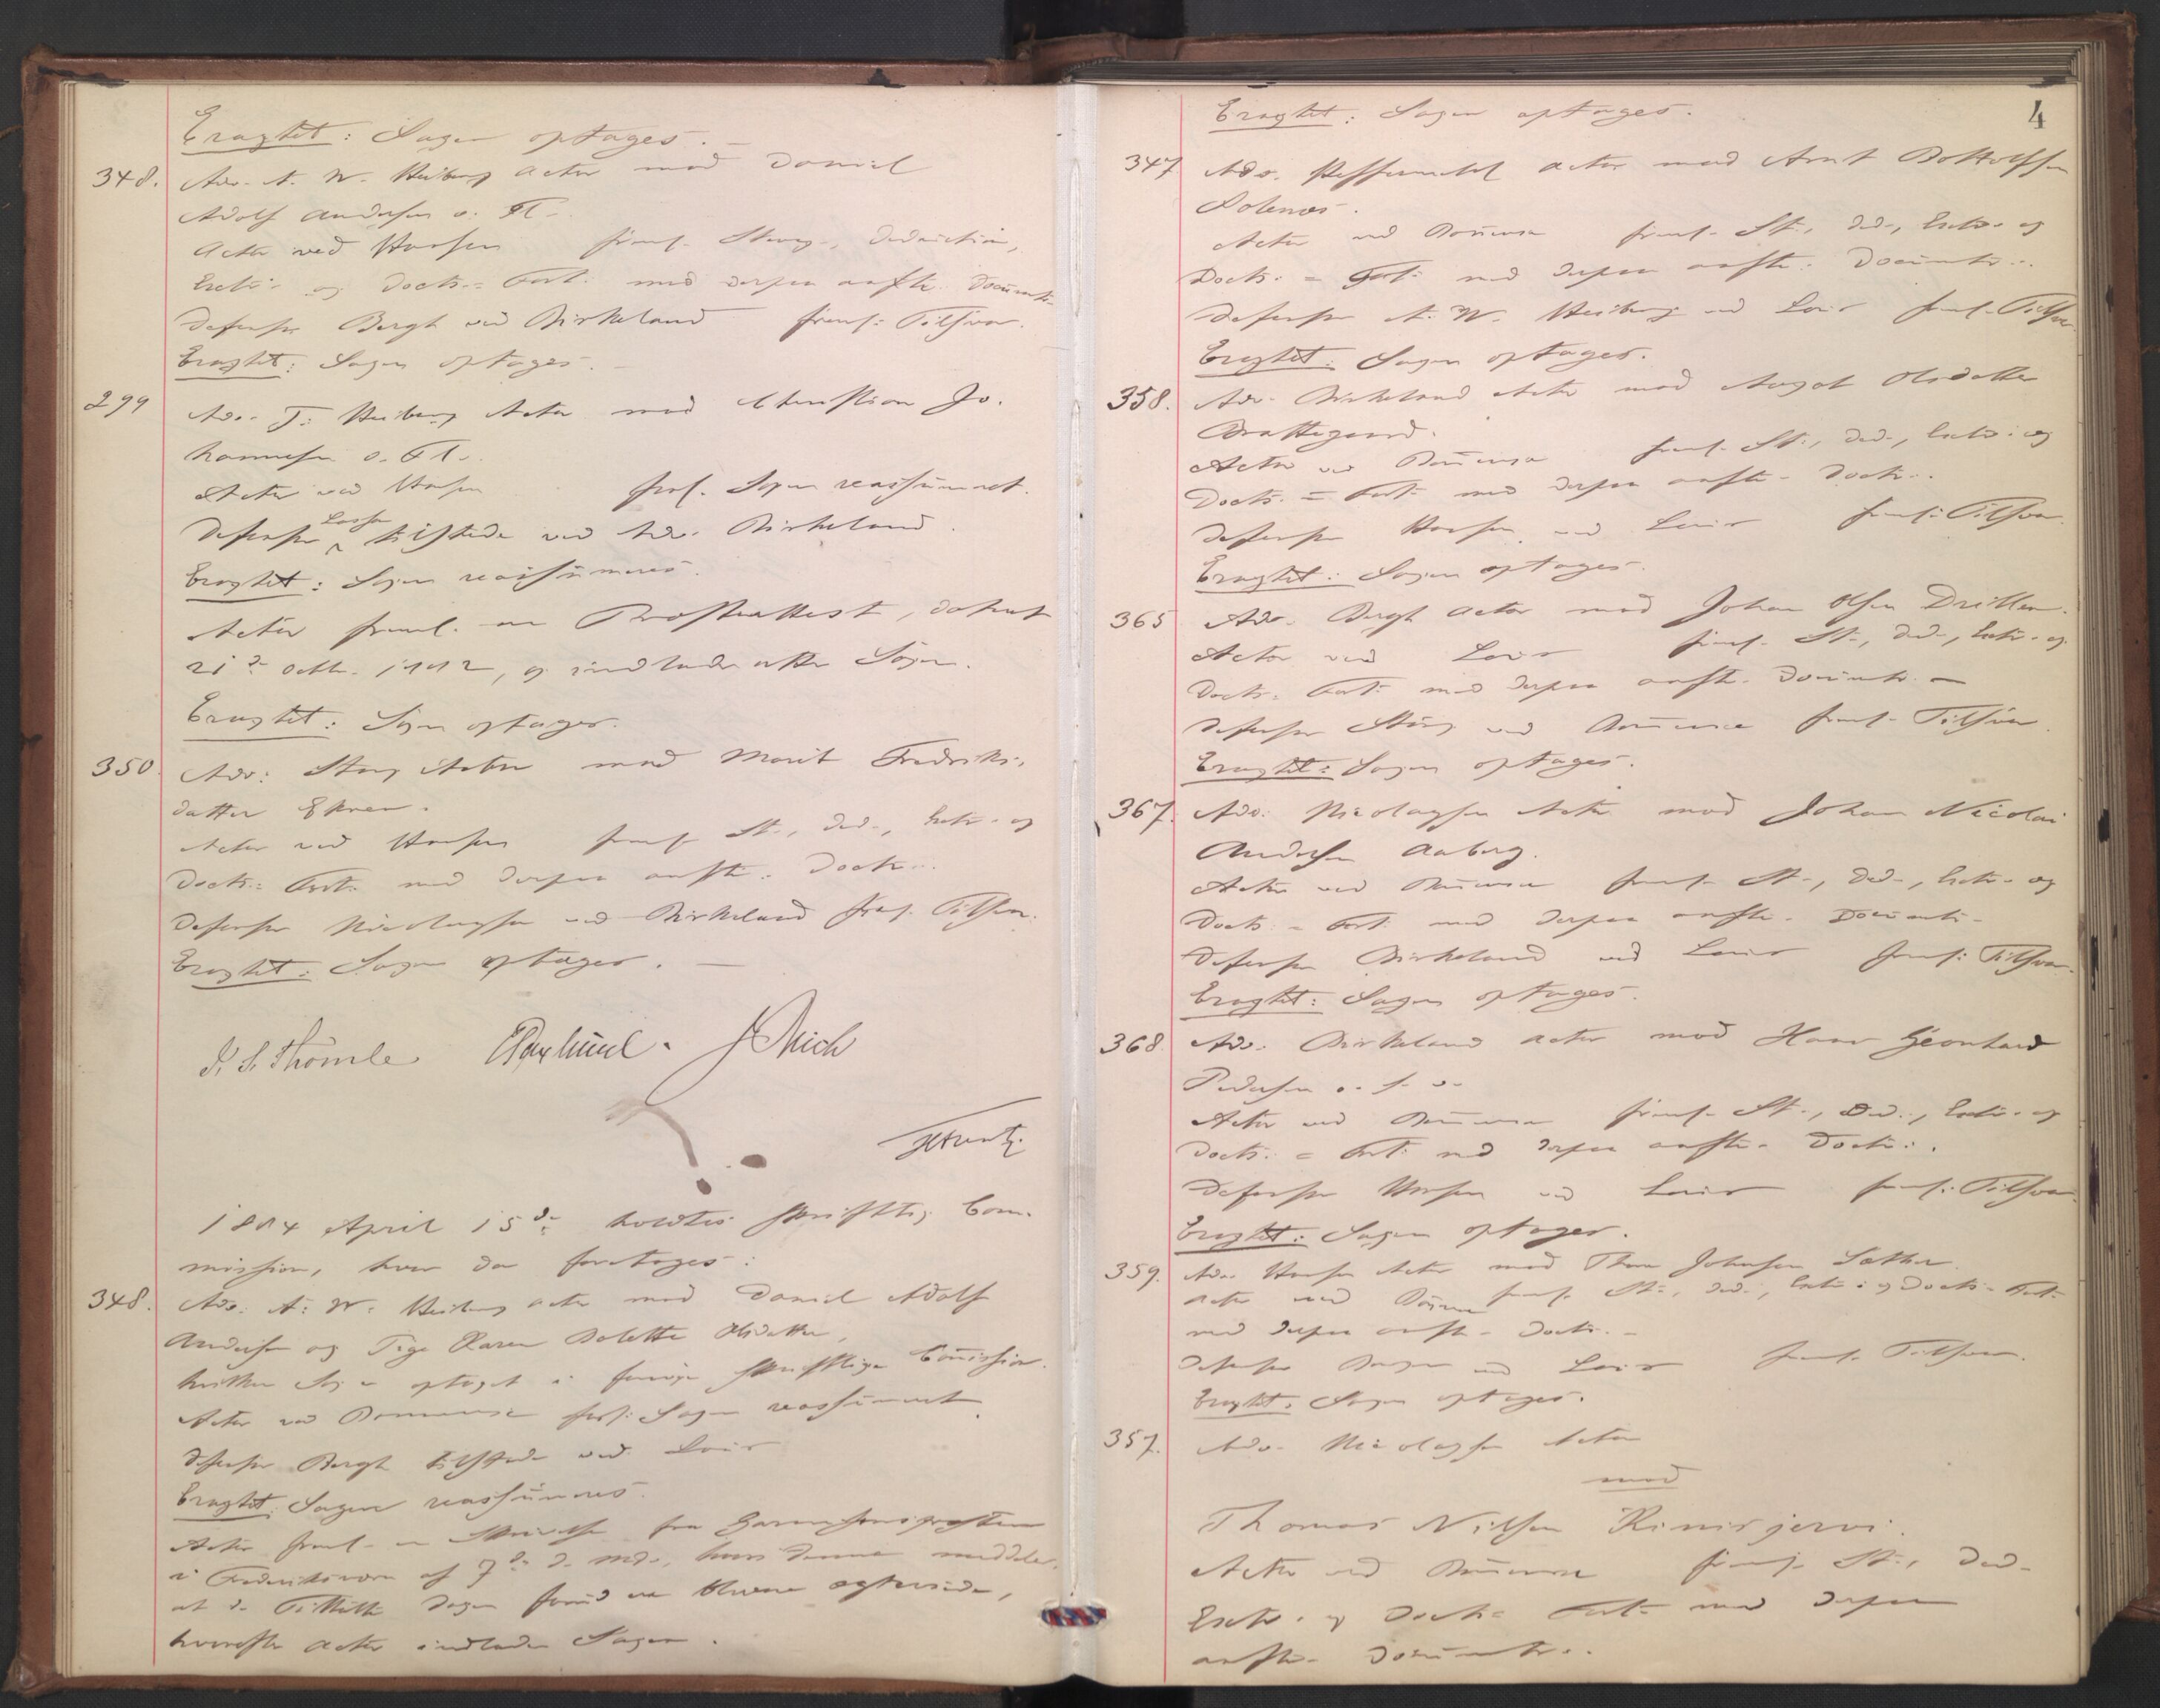 Eragtet: Sagen optages. —
348. Adv. A. W. Heiberg Actor mod Daniel
Adolf Andersen o. Fl.
Actor ved Hansen freml. Stevn., Deduction,
Extr. og Docts. = Fort. med derpaa anførte Documenter
Defensor Bergh ved Birkeland freml. Tilsvar.
Eragtet: Sagen optages. —
299 Adv. J. Heiberg Actor mod Christian Jo-
hannesen o. Fl.
Actor ved Hansen Sagen reassumeret.
Defensor Lasson tilstede ved Adv. Birkeland.
Eragtet: Sagen reassumeres.
Actor freml. en Præsteattest, dateret
21de Octbr. og indlader atter Sagen.
Eragtet: Sagen optages.
350. Adv. Stang Actor mod Marit Fredriks-
datter Ekren.
Actor ved Hansen freml. St., Ded., Extr. og
Docts. = Fort. med derpaa anførte Docts.
Defensor Nicolaysen ved Birkeland freml. Tilsvar.
Eragtet: Sagen optages. —
I. S. Thomle
1884 April 15de holdtes skriftlig Com-
mission, hvor da foretages:
348. Adv. A. W. Heiberg Actor mod Daniel Adolf
Andersen og Pige Karen Bolette Olsdatter,
hvilken Sag er optaget i forrige skriftlige Commission.
Actor ved Rommense Sagen reassumeret
Defensor Bergh tilstede ved Lous
Eragtet: Sagen reassumeres.
Actor freml. en Skrivelse fra Garnisonspresten
i Frederiksværn af 7de d. Md., hvori denne meddeler,
at de Tiltalte Dagen forud ere blevne ægteviede,
hvorefter Actor indlader Sagen.
4
Eragtet: Sagen optages.
347 Adv. Actor mod Arnt Bottolfsen
Solenæs.
Actor ved freml. St., Ded., Extr. og
Docts. = Fort. med derpaa anførte Documenter.
Defensor A. W. Heiberg ved Lous freml. Tilsvar.
Eragtet: Sagen optages.
358. Adv. Birkeland Actor mod Aagot Olsdatter
Brattegaard.
Actor ved freml. St., Ded., Extr. og
Docts. = Fort. med derpaa anførte Docts.
Defensor Hansen ved Lous freml. Tilsvar.
Eragtet: Sagen optages.
365 Adv. Bergh Actor mod Johan Olsen
Actor ved Lous freml. St., Ded., Extr. og
Docts. = Fort. med derpaa anførte Documenter. —
Defensor Stang ved freml. Tilsvar.
Eragtet: Sagen optages.
367. Adv. Nicolaysen Actor mod Johan Nicolai
Andersen Aaberg.
Actor ved freml. St., Ded., Extr. og
Docts. = Fort. med derpaa anførte Documenter
Defensor Birkeland ved Lous freml. Tilsvar.
Eragtet: Sagen optages.
368. Adv. Birkeland Actor mod Hans Leonhard
Pedersen
Actor ved freml. St., Ded., Extr. og
Docts. = Fort. med derpaa anførte Docts.
Defensor Hansen ved Lous freml. Tilsvar.
Eragtet: Sagen optages.
359. Adv. Hansen Actor mod Johnsen Sæther.
Actor ved freml. St., Ded., Extr. og Docts. = Fort.
med derpaa anførte Docts.
Defensor ved Lous freml. Tilsvar.
Eragtet: Sagen optages.
357. Adv. Nicolaysen Actor
mod
Thomas Nilsen Kinisjervi.
Actor ved freml. St., Ded.
Extr. og Docts. = Fort. med derpaa
anførte Documenter.